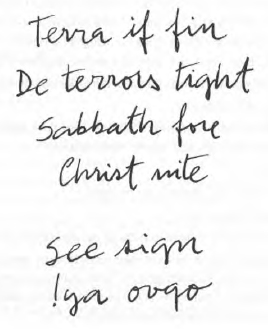 Terra if fin
De terrors tight
Sabbath fore
Christ nite
See sign
!ya ovgo